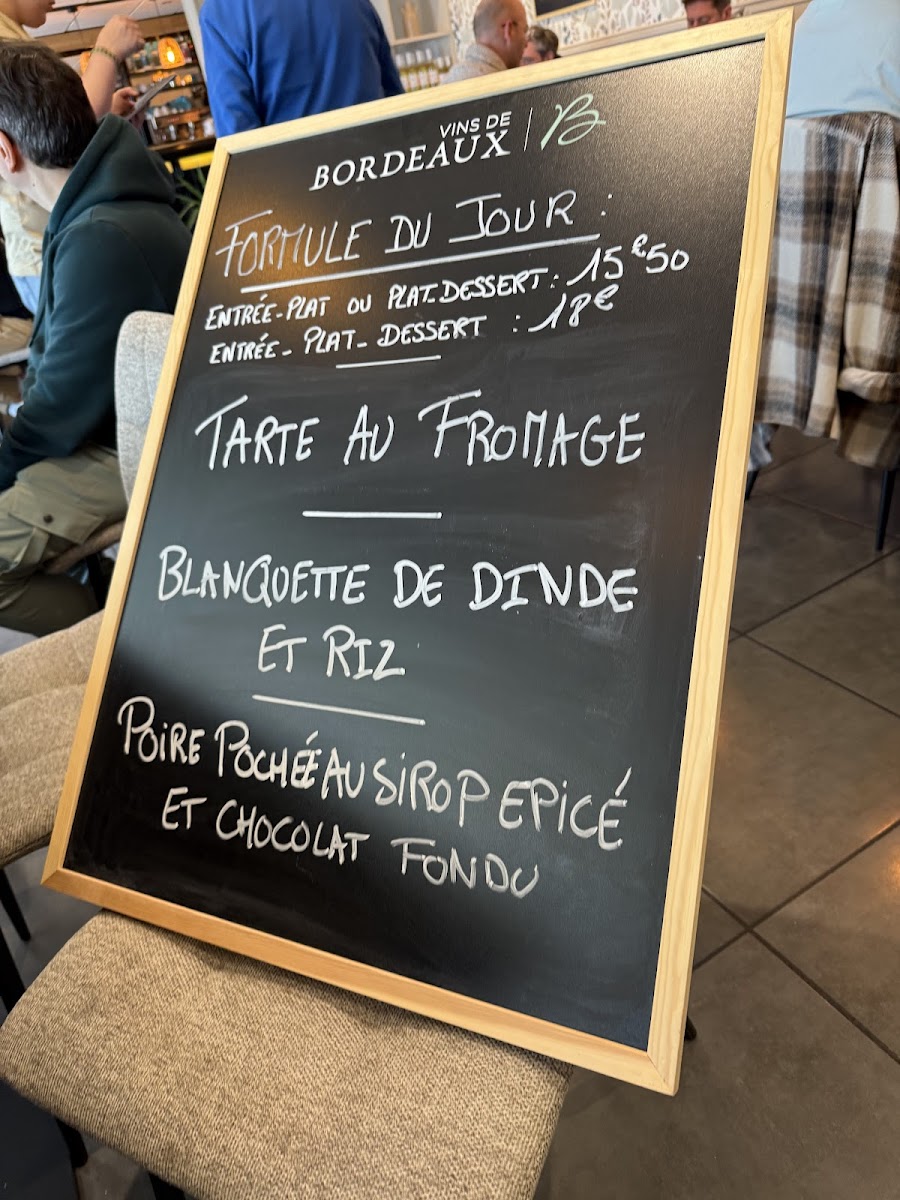 VINS DE
BORDEAUX
B
FORMULE DU JOUR :
ENTRÉE-PLAT OU PLAT-DESSERT : 15€50
ENTRÉE - PLAT - DESSERT : 18€
TARTE AU FROMAGE
BLANQUETTE DE DINDE
ET RIZ
POIRE POCHÉE AU SIROP EPICÉ
ET CHOCOLAT FONDU